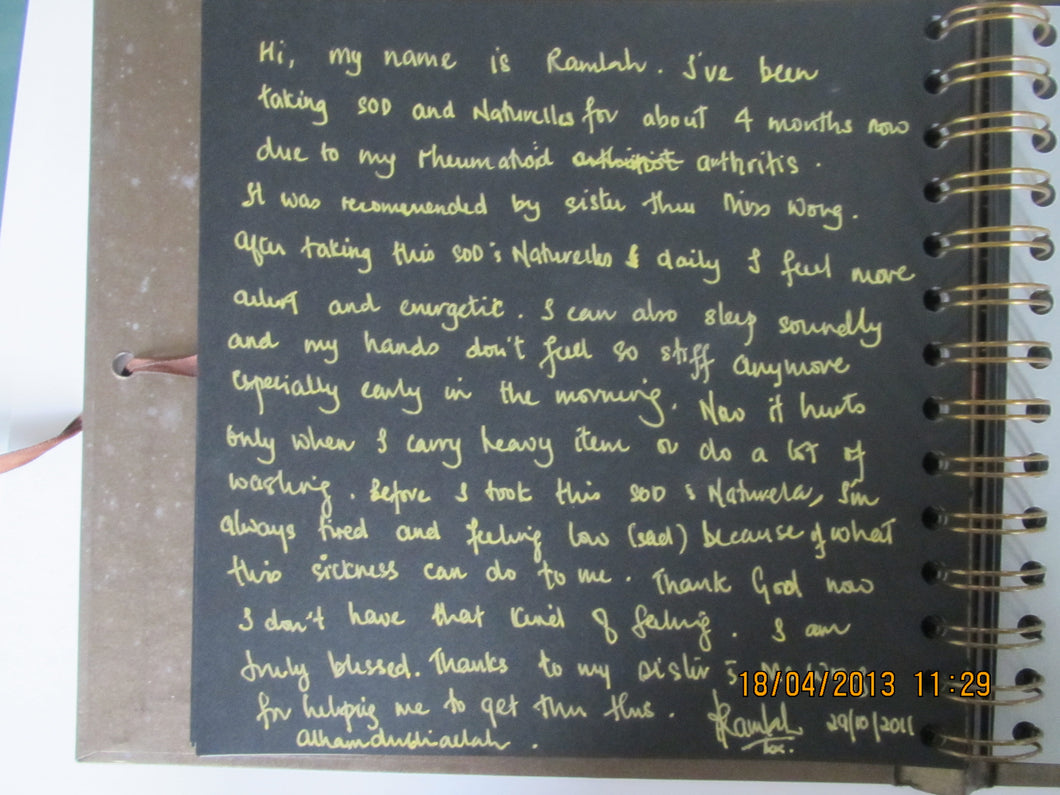 Hi, my name is Ramlah. I've been
taking SOD and Naturelles for about 4 months now
due to my rheumatoid arthritis.
It was recommended by sister thru Miss Wong.
After taking this SOD & Naturelles daily I feel more
alert and energetic. I can also sleep soundly
and my hands don't feel so stiff anymore
especially early in the morning. Now it hurts
only when I carry heavy item or do a lot of
washing. Before I took this SOD & Naturela, I'm
always tired and feeling low (sad) because of what
this sickness can do to me. Thank God now
I don't have that kind of feeling. I am
truly blessed. Thanks to my sister &
for helping me to get thru this. Ramlah 29/10/2011
Alhamdulillah.
18/04/2013 11:29